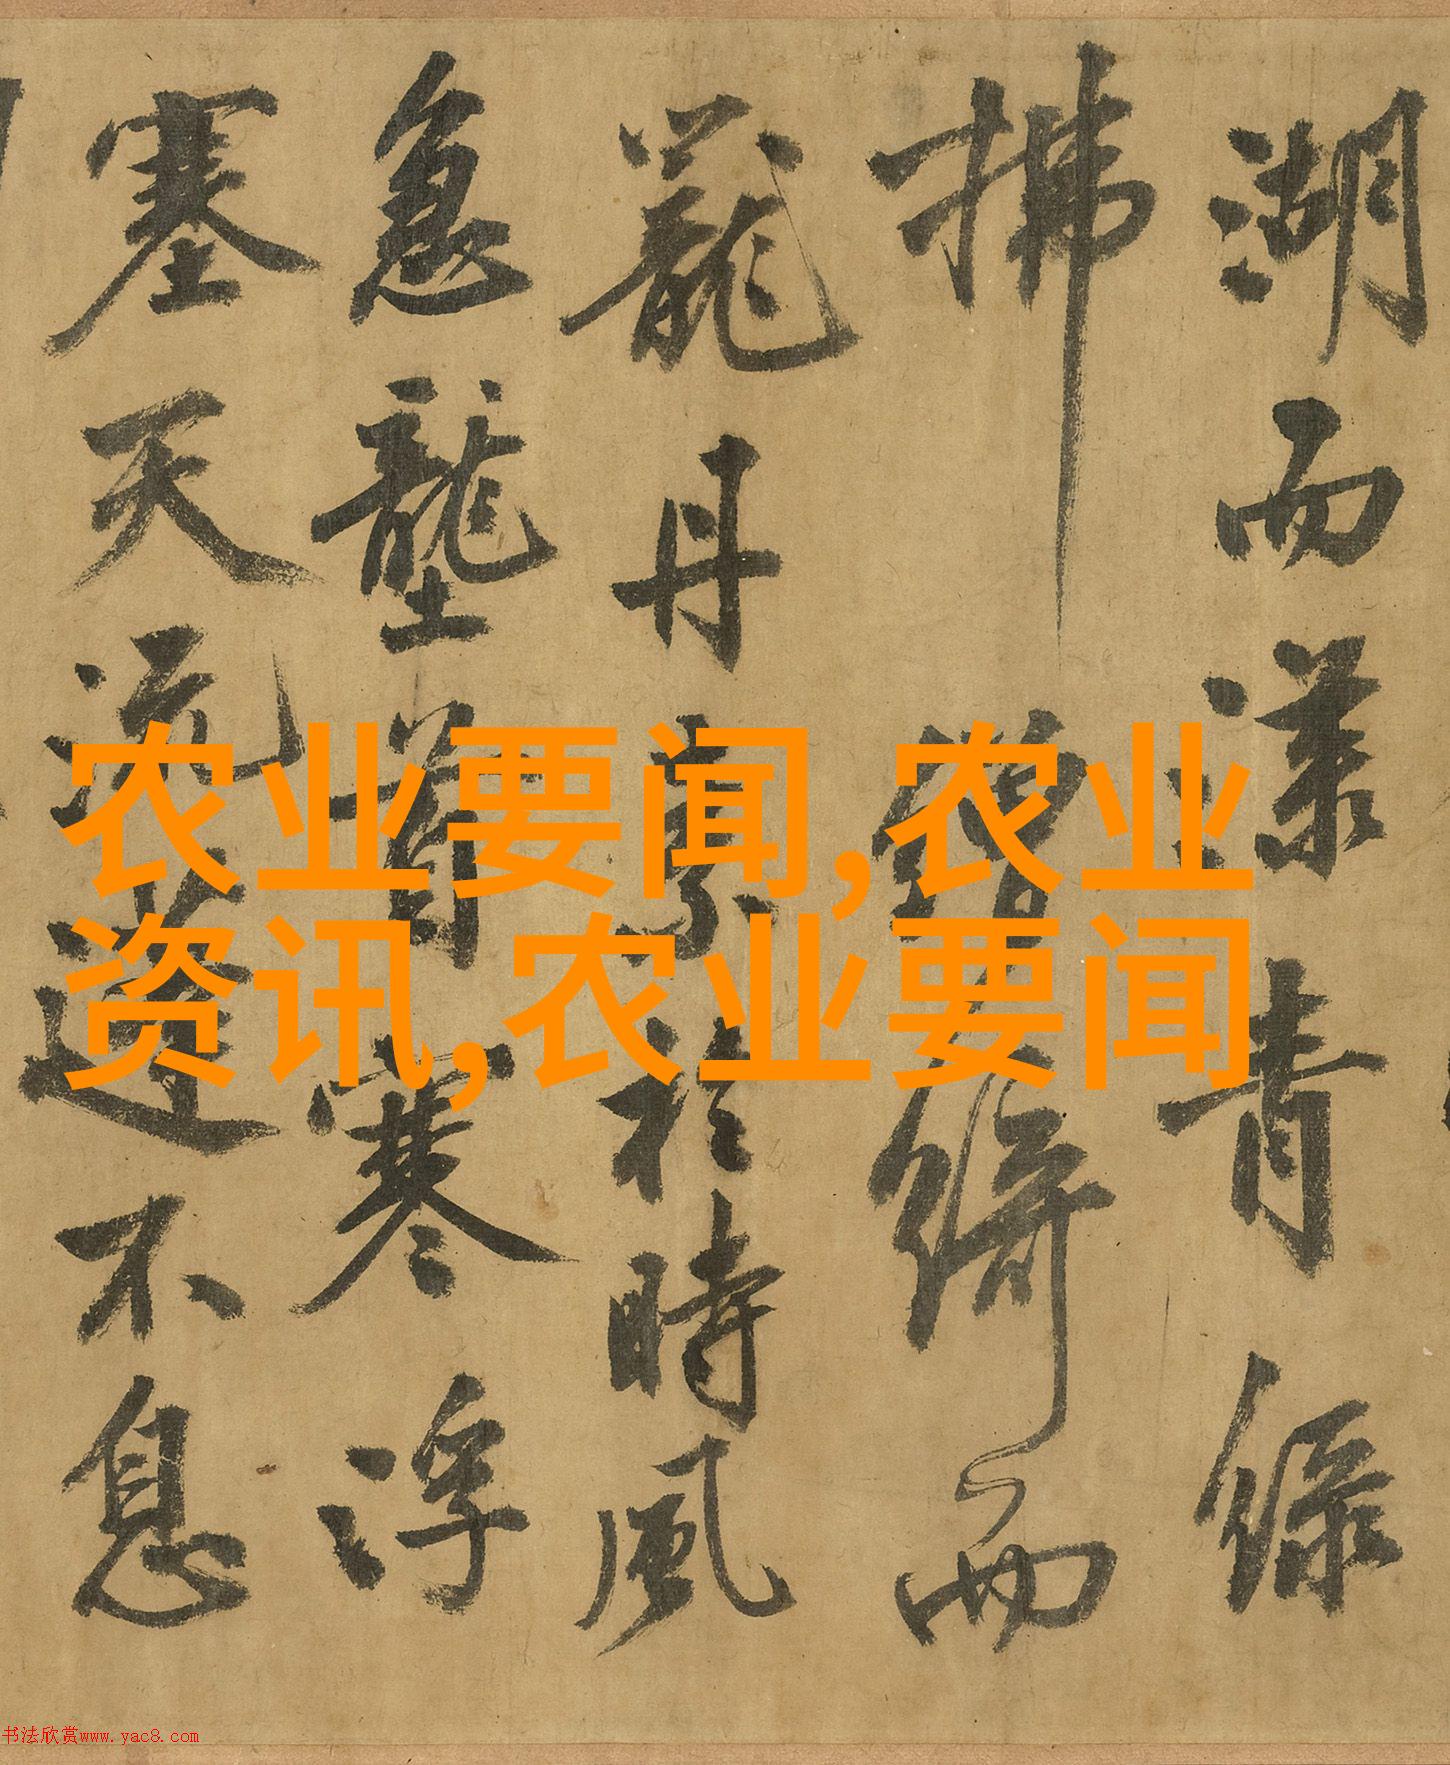 湖而漾青綠
拂繒綺而
籠丹素於時風
急壟首寒浮
塞天流蓬不息
农业要闻,农业
资讯,农业要闻
书法欣赏www.yac8.com